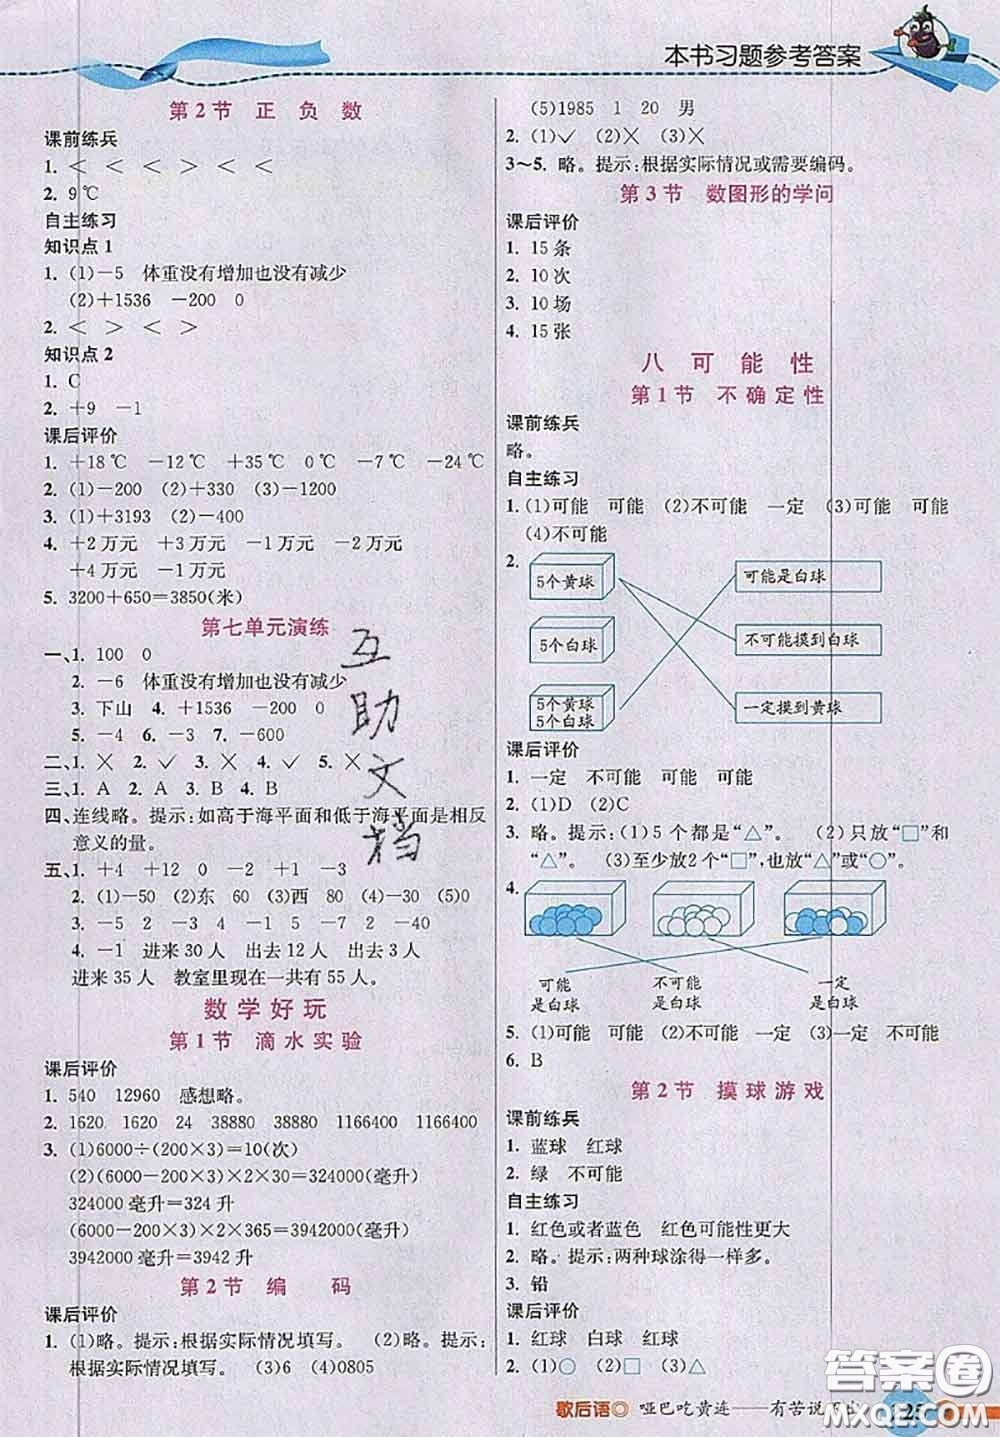 本书习题参考答案
第2节 正 负 数
课前练兵
1. < < < > < <
2. 9℃
自主练习
知识点1
1. (1)-5 体重没有增加也没有减少
(2)+1536 -200 0
2. < > < >
知识点2
1. C
2. +9 -1
课后评价
1. +18℃ -12℃ +35℃ 0℃ -7℃ -24℃
2. (1)-200 (2)+330 (3)-1200
3. (1)+3193 (2)-400
4. +2万元 +3万元 -1万元 -2万元
+4万元 -1万元
5. 3200+650=3850(米)
第七单元演练
一、1. 100 0
2. -6 体重没有增加也没有减少
3. 下山 4. +1536 -200 0
5. -4 6. -3 7. -600
二、1. × 2. ✓ 3. × 4. ✓ 5. ×
三、1. A 2. A 3. B 4. B
四、连线略。提示:如高于海平面和低于海平面是相反
意义的量。
五、1. +4 +12 0 -2 +1 -3
2. (1)-50 (2)东 60 (3)西 80 (4)50 (5)0
3. -5 2 -3 -4 3 4 -2 5
4. -1 进来30人 出去12人 出去3人
进来35人 教室里现在一共有55人。
数学好玩
第1节 滴水实验
课后评价
1. 540 12960 感想略。
2. 1620 1620 24 38880 38880 1166400 1166400
3. (1)6000÷(200×3)=10(次)
(2)(6000-200×3)×2×30=324000(毫升)
324000毫升=324升
(6000-200×3)×2×365=3942000(毫升)
3942000毫升=3942升
第2节 编 码
课后评价
1. (1)略。提示:根据实际情况填写。 (2)略。提示:
根据实际情况填写。 (3)6 (4)0805
(5)1985 1 20 男
2. (1)✓ (2)× (3)×
3~5. 略。提示:根据实际情况或需要编码。
第3节 数图形的学问
课后评价
1. 15条
2. 10次
3. 10场
4. 15张
八 可 能 性
第1节 不确定性
课前练兵
略。
自主练习
1. (1)可能 可能 (2)不可能 一定 (3)可能 可能
(4)不可能
2.
5个黄球 可能是白球
5个白球 不可能摸到白球
5个黄球
5个白球 一定摸到黄球
课后评价
1. 一定 不可能 可能 可能
2. (1)D (2)C
3. 略。提示:(1)5个都是“△”。 (2)只放“□”和
“△”。 (3)至少放2个“□”,也放“△”或“○”。
4.
可能 不可能 一定
是白球 是白球 是白球
5. (1)可能 可能 (2)不可能 一定 (3)一定 不可能
6. B
第2节 摸球游戏
课前练兵
1. 蓝球 红球
2. 绿 不可能
自主练习
1. 红色或者蓝色 红色可能性更大
2. 略。提示:两种球涂得一样多。
3. 铅
课后评价
1. 红球 白球 红球
2. (1)○ (2)□ (3)△
歇后语◎ 哑巴吃黄连——有苦说
125
互助文档
答案圈
MXQE.COM